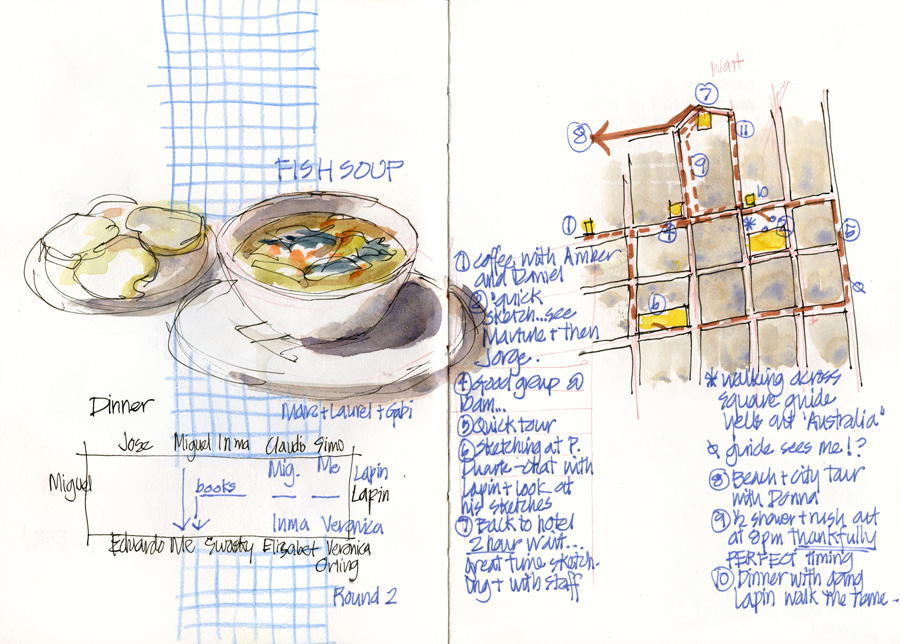 FISH SOUP
Marc + Laurel + Gabi
Dinner
Jose Miguel Inma Claudio Simo
Mig. Me Lapin
Miguel
books
Lapin
Inma Veronica
Eduardo Me Swasky Elizabet Veronica
Orling
Round 2
Wait
7
8
11
9
10
1
4
*
5
6
① coffee with Amber
and Daniel
② quick
sketch...see
Martine + then
Jorge.
④ Good group @
10am...
⑤ Quick tour
⑥ Sketching at P.
Duarte - chat with
Lapin + look at
his sketches
⑦ Back to hotel
2 hour wait...
great time sketch-
ing + with staff
* walking across
square guide
yells out 'Australia'
guide sees me!?
⑧ Beach + city tour
with Donna
⑨ ½ shower + rush out
at 8pm thankfully
PERFECT timing
⑩ Dinner with gang
Lapin walk me home -